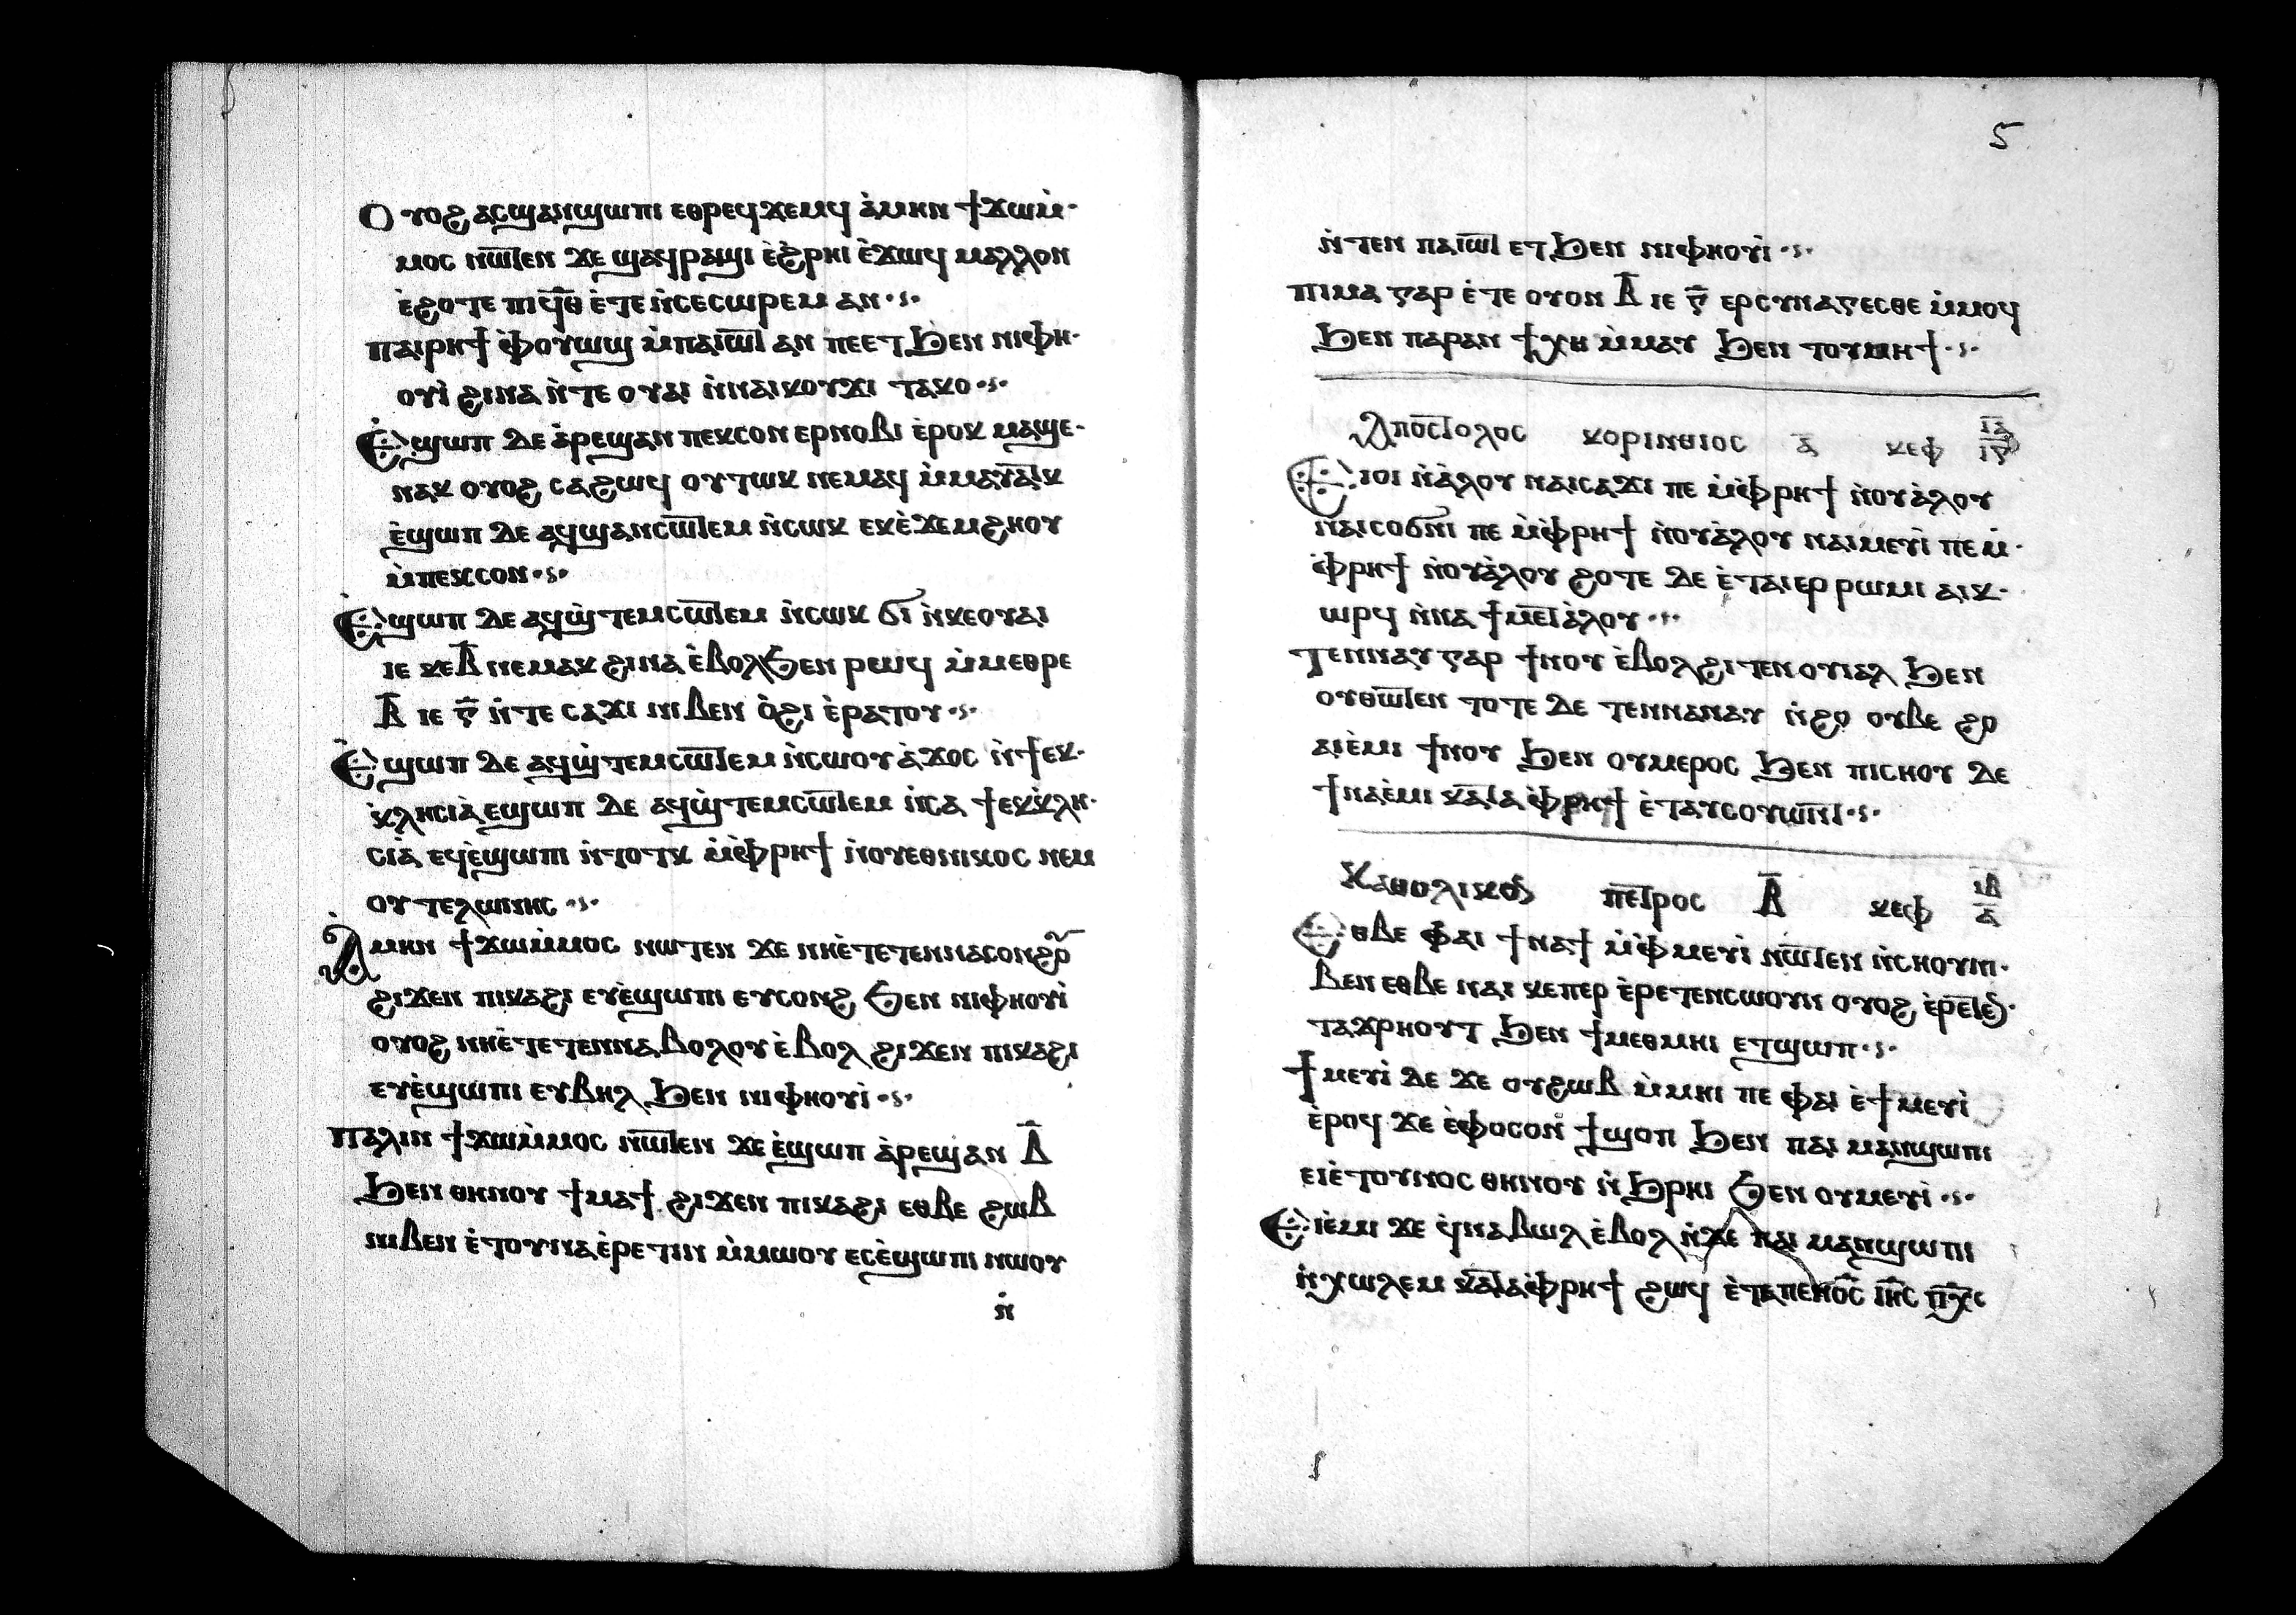 Ⲟⲩⲟϩ ⲁⲥϣⲁⲛϣⲱⲡⲓ ⲉⲑⲣⲉϥϫⲉⲙϥ ⲁ̀ⲙⲏⲛ ϯϫⲱⲙ̀
ⲙⲟⲥ ⲛⲱ̅ⲧⲉⲛ ϫⲉ ϣⲁϥⲣⲁϣⲓ ⲉ̀ϩ̀ⲣⲏⲓ ⲉ̀ϫⲱϥ ⲙⲁⲗⲗⲟⲛ
ⲉ̀ϩⲟⲧⲉ ⲡⲓϥ̅ⲑ ⲉ̀ⲧⲉ ⲛ̀ⲥⲉⲥⲱⲣⲉⲙ ⲁⲛ
ⲡⲁⲓⲣⲏϯ ⲫ̀ⲟⲩⲱϣ ⲙ̀ⲡⲁⲓⲱ̅ⲧ ⲁⲛ ⲡⲉⲉⲧϦⲉⲛ ⲛⲓⲫⲏ
ⲟⲩⲓ̀ ϩⲓⲛⲁ ⲛ̀ⲧⲉ ⲟⲩⲁⲓ ⲛ̀ⲛⲁⲓⲕⲟⲩϫⲓ ⲧⲁⲕⲟ
Ⲉ̀ϣⲱⲡ ⲇⲉ ⲁ̀ⲣⲉϣⲁⲛ ⲡⲉⲕⲥⲟⲛ ⲉⲣⲛⲟⲃⲓ ⲉ̀ⲣⲟⲕ ⲙⲁϣⲉ
ⲛⲁⲕ ⲟⲩⲟϩ ⲥⲁϩⲱϥ ⲟⲩⲧⲱⲕ ⲛⲉⲙⲁϥ ⲙ̀ⲙⲁⲩⲁ̅ⲧⲕ
ⲉ̀ϣⲱⲡ ⲇⲉ ⲁϥϣⲁⲛⲥⲱ̅ⲧⲉⲙ ⲛ̀ⲥⲱⲕ ⲉⲕⲉ̀ϫⲉⲙϩⲏⲟⲩ
ⲙ̀ⲡⲉⲕⲥⲟⲛ
Ⲉ̀ϣⲱⲡ ⲇⲉ ⲁϥϣ̀ⲧⲉⲙⲥⲱ̅ⲧⲉⲙ ⲛ̀ⲥⲱⲕ ϭⲓ ⲛ̀ⲕⲉⲟⲩⲁⲓ
ⲓⲉ ⲕⲉⲃ̅ ⲛⲉⲙⲁⲕ ϩⲓⲛⲁ ⲉ̀ⲃⲟⲗϦⲉⲛ ⲣⲱϥ ⲙ̀ⲙⲉⲑⲣⲉ
ⲃ̅ ⲓⲉ ⲅ̅ ⲛ̀ⲧⲉ ⲥⲁϫⲓ ⲛⲓⲃⲉⲛ ⲟ̀ϩⲓ ⲉ̀ⲣⲁⲧⲟⲩ
Ⲉ̀ϣⲱⲡ ⲇⲉ ⲁϥϣ̀ⲧⲉⲙⲥⲱ̅ⲧⲉⲙ ⲛ̀ⲥⲱⲟⲩ ⲁ̀ϫⲟⲥ ⲛ̀ϯⲉⲕ
ⲕ̀ⲗⲏⲥⲓⲁ̀ ⲉϣⲱⲡ ⲇⲉ ⲁϥϣ̀ⲧⲉⲙⲥⲱ̅ⲧⲉⲙ ⲛ̀ⲥⲁ ϯⲉⲕⲕ̀ⲗⲏ
ⲥⲓⲁ̀ ⲉϥⲉ̀ϣⲱⲡⲓ ⲛ̀ⲧⲟⲧⲕ ⲙ̀ⲫ̀ⲣⲏϯ ⲛ̀ⲟⲩⲉⲑⲛⲓⲕⲟⲥ ⲛⲉⲙ
ⲟⲩⲧⲉⲗⲱⲛⲏⲥ
Ⲁ̀ⲙⲏⲛ ϯϫⲱⲙ̀ⲙⲟⲥ ⲛⲱⲧⲉⲛ ϫⲉ ⲛⲏⲉ̀ⲧⲉⲧⲉⲛⲛⲁⲥⲟⲛϩⲟⲩ
ϩⲓϫⲉⲛ ⲡⲓⲕⲁϩⲓ ⲉⲩⲉ̀ϣⲱⲡⲓ ⲉⲩⲥⲟⲛϩ Ϧⲉⲛ ⲛⲓⲫⲏⲟⲩⲓ̀
ⲟⲩⲟϩ ⲛⲏⲉ̀ⲧⲉⲧⲉⲛⲛⲁⲃⲟⲗⲟⲩ ⲉ̀ⲃⲟⲗ ϩⲓϫⲉⲛ ⲡⲓⲕⲁϩⲓ
ⲉⲩⲉ̀ϣⲱⲡⲓ ⲉⲩⲃⲏⲗ Ϧⲉⲛ ⲛⲓⲫⲏⲟⲩⲓ̀
Ⲡⲁⲗⲓⲛ ϯϫⲱⲙ̀ⲙⲟⲥ ⲛⲱ̅ⲧⲉⲛ ϫⲉ ⲉ̀ϣⲱⲡ ⲁ̀ⲣⲉϣⲁⲛ ⲃ̅
Ϧⲉⲛ ⲑⲏⲛⲟⲩ ϯⲙⲁϯ ϩⲓϫⲉⲛ ⲡⲓⲕⲁϩⲓ ⲉⲑⲃⲉ ϩⲱⲃ
ⲛⲓⲃⲉⲛ ⲉ̀ⲧⲟⲩⲛⲁⲉ̀ⲣⲉⲧⲓⲛ ⲙ̀ⲙⲱⲟⲩ ⲉⲥⲉ̀ϣⲱⲡⲓ ⲛⲱⲟⲩ
ⲛ̀
5
ⲛ̀ⲧⲉⲛ ⲡⲁⲓⲱ̅ⲧ ⲉⲧϦⲉⲛ ⲛⲓⲫⲏⲟⲩⲓ̀
ⲡⲓⲙⲁ ⲅⲁⲣ ⲉ̀ⲧⲉ ⲟⲩⲟⲛ ⲃ̅ ⲓⲉ ⲅ̅ ⲉⲣⲥⲩⲛⲁⲅⲉⲥⲑⲉ ⲙ̀ⲙⲟϥ
Ϧⲉⲛ ⲡⲁⲣⲁⲛ ϯⲭⲏ ⲙ̀ⲙⲁⲩ Ϧⲉⲛ ⲧⲟⲩⲙⲏϯ
Ⲁⲡⲟⲥ̅ⲧⲟⲗⲟⲥ ⲕⲟⲣⲓⲛⲑⲓⲟⲥ ⲁ̅ ⲕⲉⲫ ⲓⲁ̅ ⲓⲅ̅
Ⲉⲓⲟⲓ ⲛ̀ⲁ̀ⲗⲟⲩ ⲛⲁⲓⲥⲁϫⲓ ⲡⲉ ⲙ̀ⲫ̀ⲣⲏϯ ⲛ̀ⲟⲩⲁ̀ⲗⲟⲩ
ⲛⲁⲓⲥⲟϭⲛⲓ ⲡⲉ ⲙ̀ⲫ̀ⲣⲏϯ ⲛ̀ⲟⲩⲁ̀ⲗⲟⲩ ⲛⲁⲓⲙⲉⲩⲓ̀ ⲡⲉ ⲙ̀
ⲫ̀ⲣⲏϯ ⲛ̀ⲟⲩⲁ̀ⲗⲟⲩ ϩⲟⲧⲉ ⲇⲉ ⲉ̀ⲧⲁⲓⲉⲣ ⲣⲱⲙⲓ ⲁⲓⲕ
ⲱⲣϥ ⲛ̀ⲛⲁ ϯⲙⲉ̅ⲧⲁ̀ⲗⲟⲩ
Ⲧⲉⲛⲛⲁⲩ ⲅⲁⲣ ϯⲛⲟⲩ ⲉ̀ⲃⲟⲗϩⲓⲧⲉⲛ ⲟⲩⲓⲁⲗ Ϧⲉⲛ
ⲟⲩⲑⲱ̅ⲧⲉⲛ ⲧⲟⲧⲉ ⲇⲉ ⲧⲉⲛⲛⲁⲛⲁⲩ ⲛ̀ϩⲟ ⲟⲩⲃⲉ ϩⲟ
ⲁⲓⲉ̀ⲙⲓ ϯⲛⲟⲩ Ϧⲉⲛ ⲟⲩⲙⲉⲣⲟⲥ Ϧⲉⲛ ⲡⲓⲥⲏⲟⲩ ⲇⲉ
ϯⲛⲁⲉ̀ⲙⲓ ⲕⲁ̅ⲧⲁ ⲫ̀ⲣⲏϯ ⲉ̀ⲧⲁⲩⲥⲟⲩⲱⲛ̅ⲧ
Ⲕⲁⲑⲟⲗⲓⲕⲟⲛ ⲡⲉ̅ⲧⲣⲟⲥ ⲃ̅ ⲕⲉⲫ ⲓⲃ̅ ⲁ̅
Ⲉⲑⲃⲉ ⲫⲁⲓ ϯⲛⲁϯ ⲙ̀ⲫ̀ⲙⲉⲩⲓ̀ ⲛⲱ̅ⲧⲉⲛ ⲛ̀ⲥⲏⲟⲩⲛⲓ
ⲃⲉⲛ ⲉⲑⲃⲉ ⲛⲁⲓ ⲕⲉⲡⲉⲣ ⲉ̀ⲣⲉⲧⲉⲛⲥⲱⲟⲩⲛ ⲟⲩⲟϩ ⲉ̀ⲣⲉ̅ⲧⲉⲛ
ⲧⲁϫⲣⲏⲟⲩⲧ Ϧⲉⲛ ϯⲙⲉⲑⲙⲏⲓ ⲉⲧϣⲱⲡ
Ϯⲙⲉⲩⲓ̀ ⲇⲉ ϫⲉ ⲟⲩϩⲱⲃ ⲙ̀ⲙⲏⲓ ⲡⲉ ⲫⲁⲓ ⲉ̀ϯⲙⲉⲩⲓ̀
ⲉ̀ⲣⲟϥ ϫⲉ ⲉ̀ⲫⲟⲥⲟⲛ ϯϣⲟⲡ Ϧⲉⲛ ⲡⲁⲓ ⲙⲁⲛϣⲱⲡⲓ
ⲉⲓⲉ̀ⲧⲟⲩⲛⲟⲥ ⲑⲏⲛⲟⲩ ⲛ̀Ϧⲣⲏⲓ Ϧⲉⲛ ⲟⲩⲙⲉⲩⲓ̀
Ⲉⲓⲉ̀ⲙⲓ ϫⲉ ϥ̀ⲛⲁⲃⲱⲗ ⲉ̀ⲃⲟⲗ ⲛ̀ϫⲉ ⲡⲁⲓ ⲙⲁⲛϣⲱⲡⲓ
ⲛ̀ⲭⲱⲗⲉⲙ ⲕⲁ̅ⲧⲁⲫ̀ⲣⲏϯ ϩⲱϥ ⲉ̀ⲧⲁⲡⲉⲛⲟ̅ⲥ̅ ⲓⲏ̅ⲥ̅ ⲡⲭ̅ⲥ̅